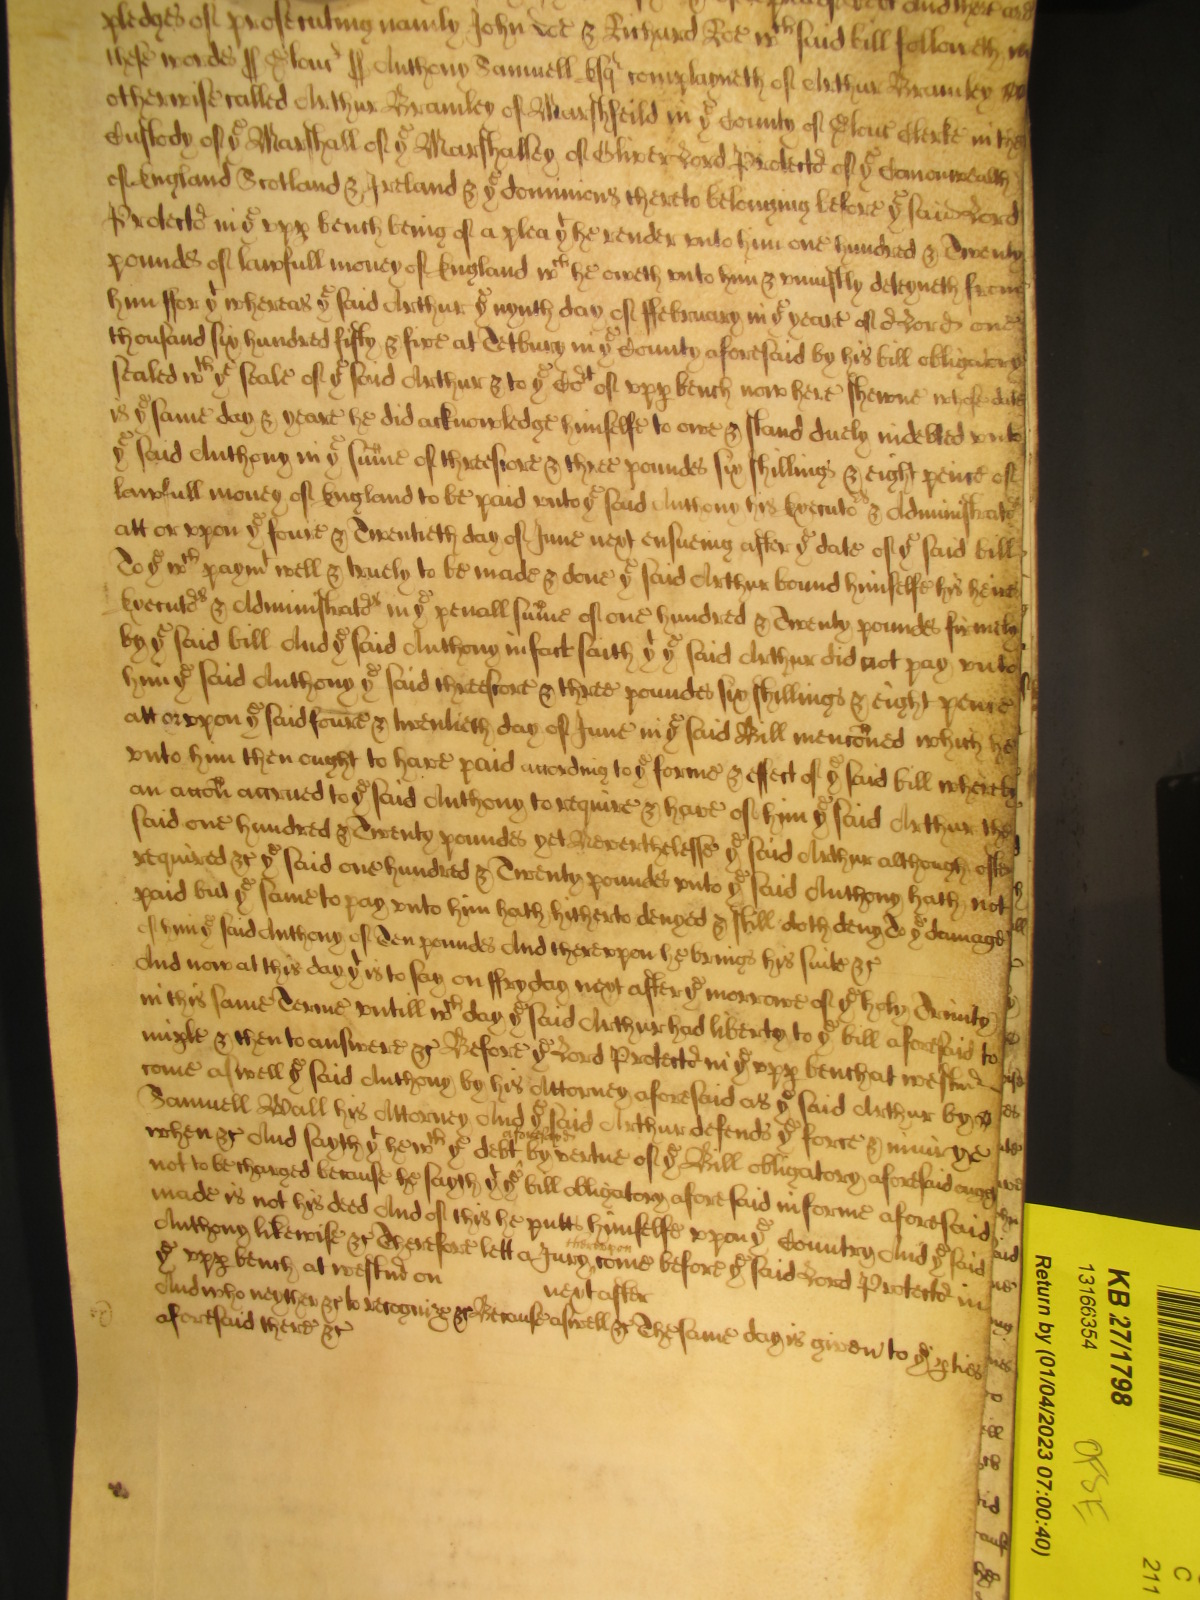 pledges of prosecuting namly John Doe & Richard Roe wch said bill followeth in
these wordes ss Glouc ss Anthony Samuell Esqr complayneth of Arthur Bramley
otherwise called Arthur Bramley of Marshfeild in ye County of Glouc Clerke in the
Custody of ye Marshall of ye Marshalsey of Oliver Lord Protector of ye Comonwealth
of England Scotland & Ireland & ye dominions thereto belonging before ye said Lord
Protector in ye upp bench being of a plea yt he render vnto him one hundred & Twenty
poundes of lawfull money of England wch he oweth vnto him & vniustly deteyneth from
him ffor yt whereas ye said Arthur ye nynth day of ffebruary in ye yeare of or Lord one
thousand six hundred fifty & five at Tetbury in ye County aforesaid by his bill obligatory
sealed wth ye seale of ye said Arthur & to ye Cort of vpp bench now here shewne whose date
is ye same day & yeare he did acknowledge himselfe to owe & stand duely indebted vnto
ye said Anthony in ye sume of threescore & three poundes six shillings & eight pence of
lawfull money of England to be paid vnto ye said Anthony his Executors & Administrators
att or vpon ye foure & Twentieth day of June next ensueing after ye date of ye said bill
To ye wch paymt well & truely to be made & done ye said Arthur bound himselfe his heires
Executors & Administrators in ye penall sume of one hundred & Twenty poundes firmely
by ye said bill And ye said Anthony in fact saith yt ye said Arthur did not pay vnto
him ye said Anthony ye said threescore & three poundes six shillings & eight pence
att or vpon ye said foure & twentieth day of June in ye said Bill menconed which he
vnto him then ought to have paid according to ye forme & effect of ye said bill whereby
an accon accrued to ye said Anthony to require & have of him ye said Arthur the
said one hundred & Twenty poundes yet Neverthelesse ye said Arthur although often
required &c ye said one hundred & Twenty poundes vnto ye said Anthony hath not
paid but ye same to pay vnto him hath hitherto denyed & still doth deny To ye damage
of him ye said Anthony of Ten poundes And therevpon he brings his suite &c
And now at this day yt is to say on ffryday next after ye morrowe of ye holy Trinity
in this same Terme vntill wch day ye said Arthur had liberty to ye bill aforesaid to
imple & then to answere &c Before ye Lord Protector in ye vpp bench at Westmr
come aswell ye said Anthony by his Attorney aforesaid as ye said Arthur by
Samuell Wall his Attorney And ye said Arthur defends ye force & iniurye
when &c And sayth yt he wth ye debt aforesaid by vertue of ye Bill obligatory aforesaid ought
not to be charged because he sayth yt ye bill obligatory aforesaid in forme aforesaid
made is not his deed And of this he putts himselfe vpon ye Country And ye said
Anthony likewise &c Therefore lett a Jury therevpon come before ye said Lord Protector in
ye vpp bench at Westmr on next after
And who neyther &c to recognize &c Because aswell &c The same day is given to ye pties
aforesaid there &c
KB 27/1798
13166354
Return by (01/04/2023 07:00:40)
C
211